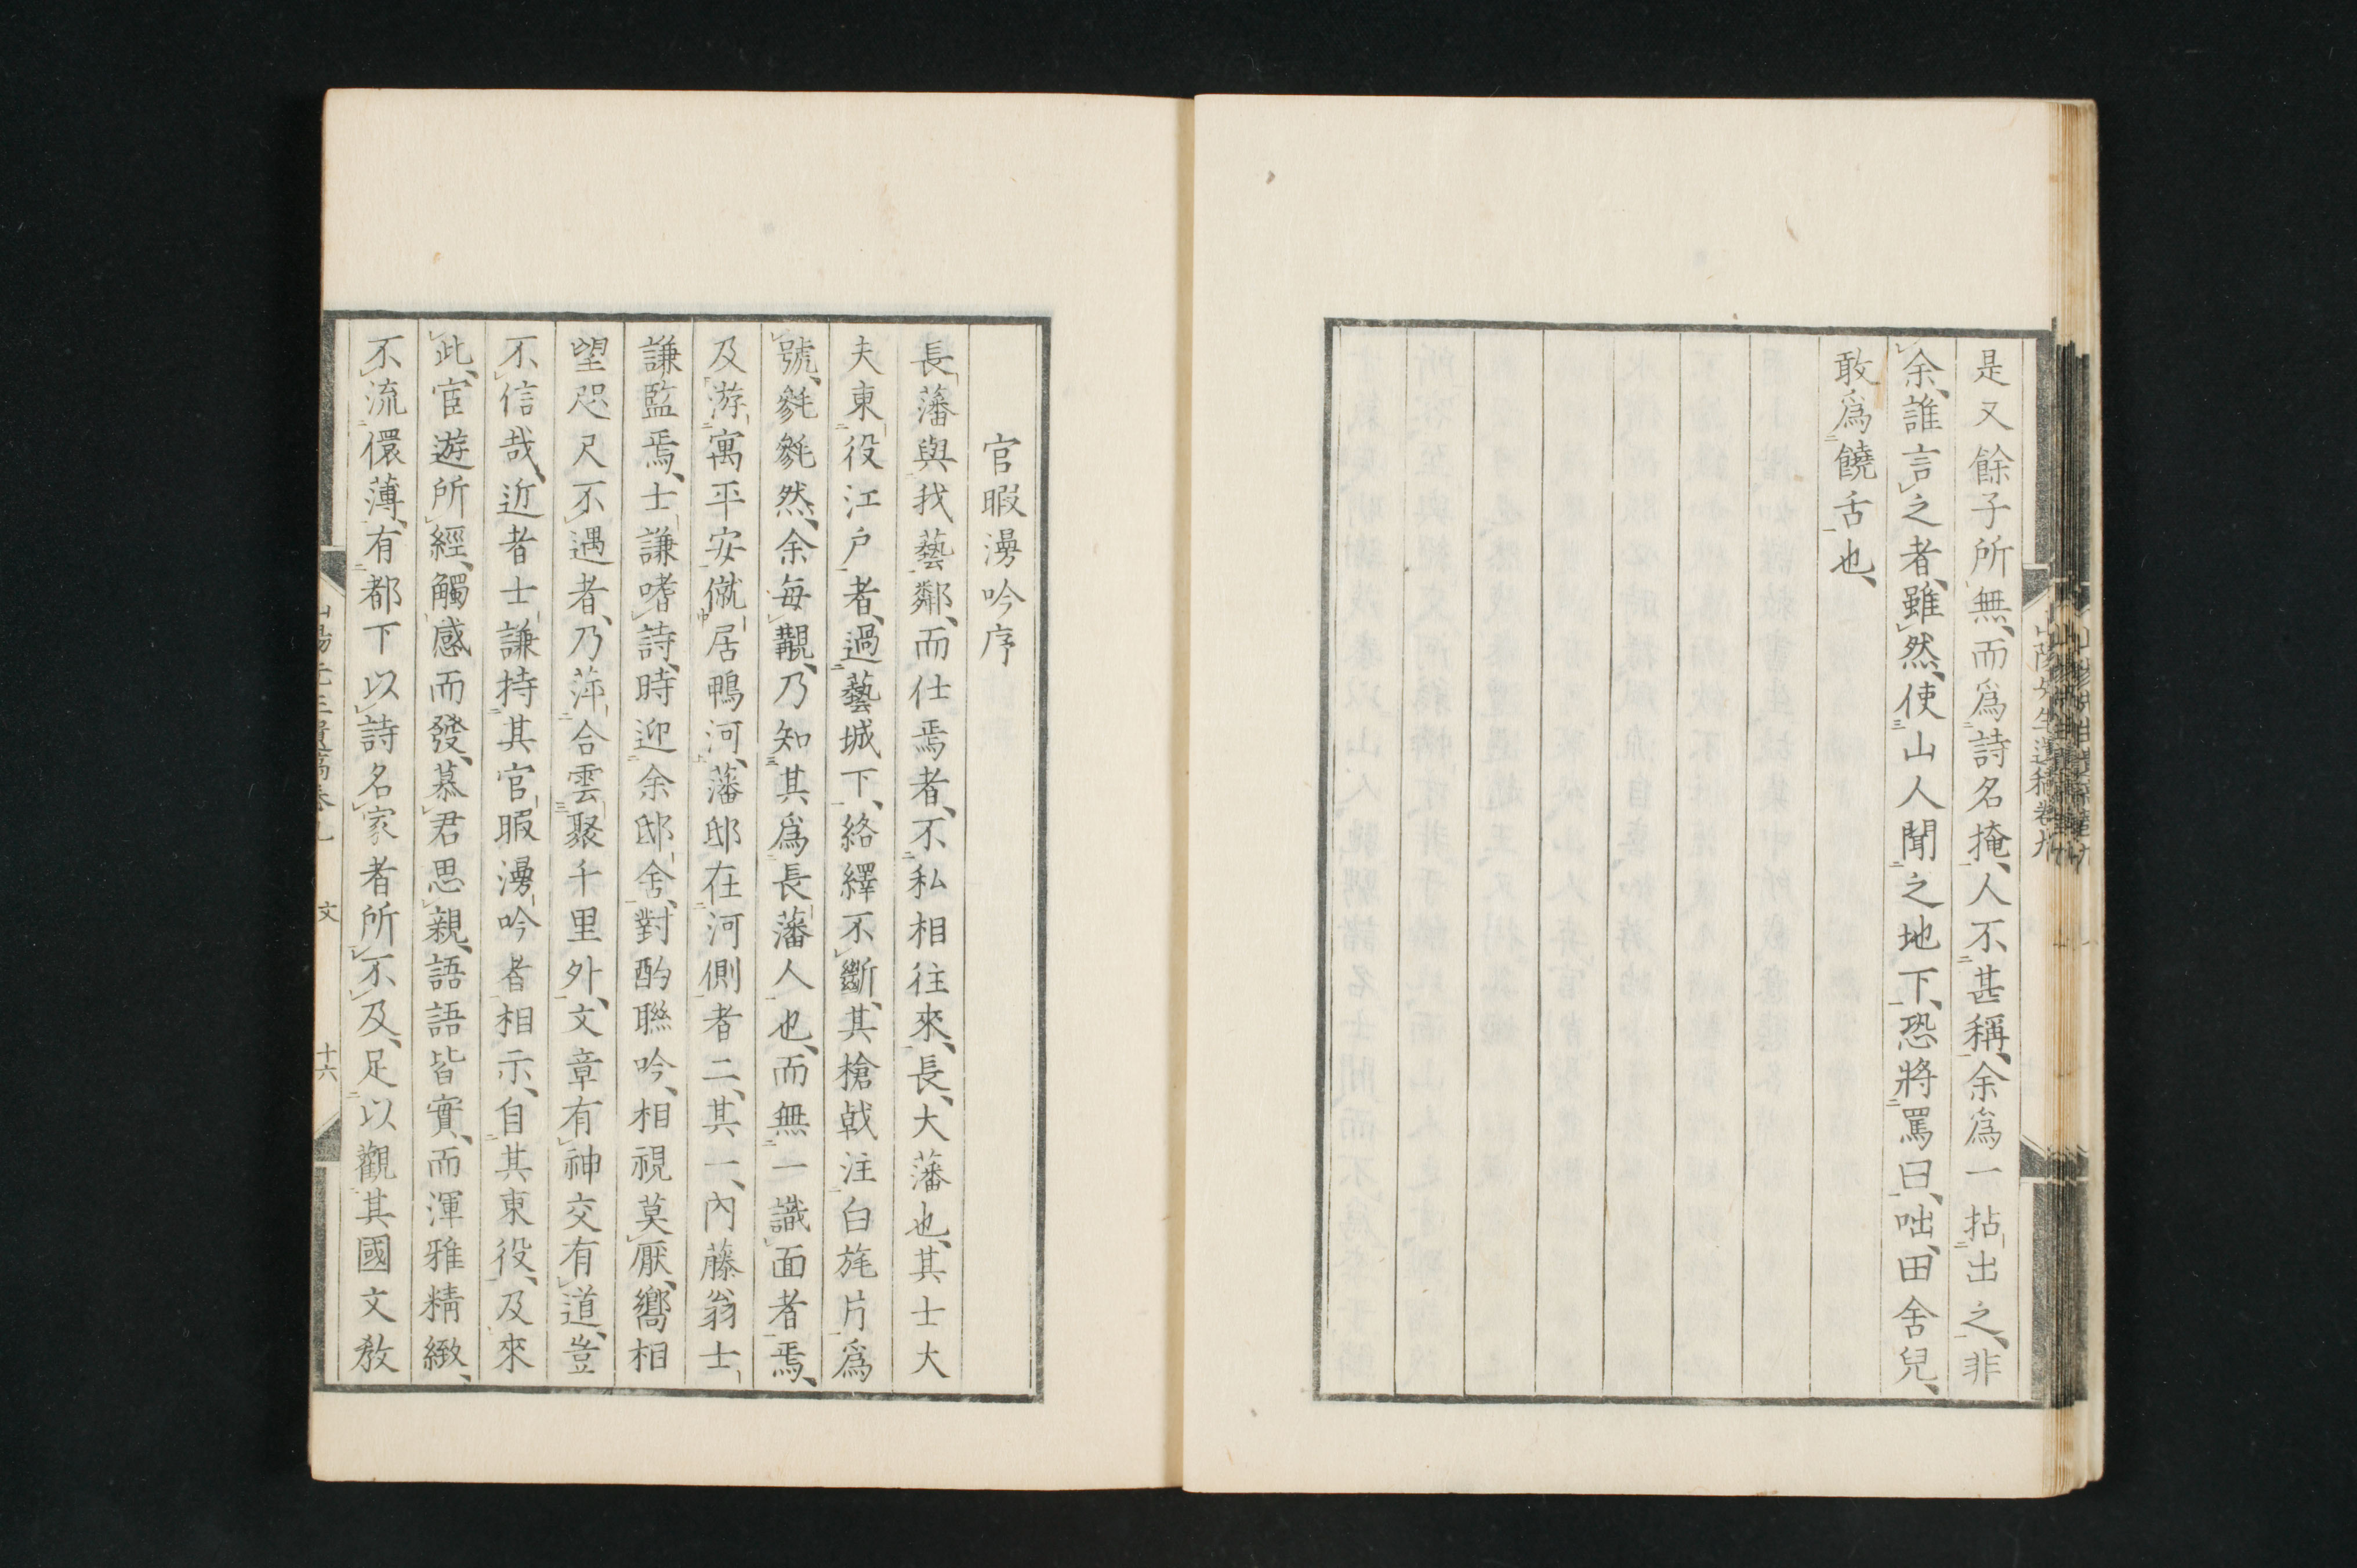 是又餘子所無、而爲詩名掩、人不甚稱、余爲一拈出之、非
余、誰言之者、雖然、使山人聞之地下、恐將罵曰、咄、田舍兒、
敢爲饒舌也、
官暇漫吟序
長藩與我藝鄰、而仕焉者、不私相往來、長、大藩也、其士大
夫東役江戶者、過藝城下、絡繹不斷、其槍戟注白旄片爲
號、毿毿然、余每覯、乃知其爲長藩人也、而無一識面者焉、
及游寓平安、僦居鴨河、藩邸在河側者二、其一、內藤翁士
謙監焉、士謙嗜詩、時迎余邸舍、對酌聯吟、相視莫厭、嚮相
望咫尺不遇者、乃萍合雲聚千里外、文章有神交有道、豈
不信哉、近者士謙持其官暇漫吟者相示、自其東役、及來
此、宦遊所經、觸感而發、慕君思親、語語皆實、而渾雅精緻、
不流儇薄、有都下以詩名家者所不及、足以觀其國文敎
山陽先生遺稿卷九 文 十六